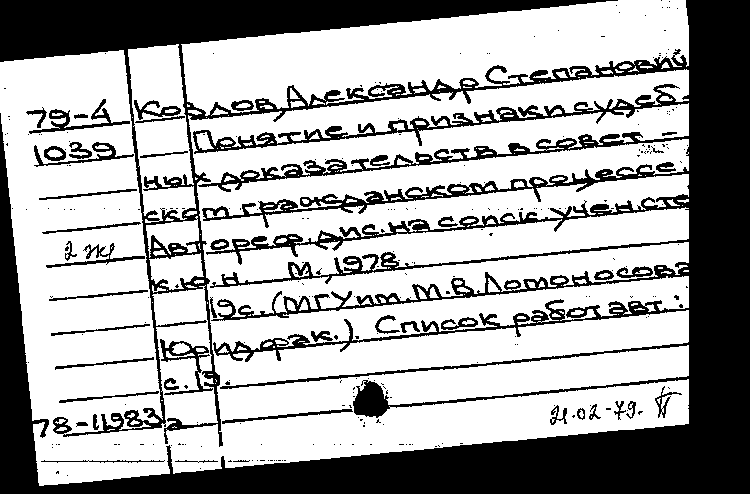 79-4 Козлов, Александр Степанович
1039 Понятие и признаки судеб-
ных доказательств в совет-
ском гражданском процессе.
2 эк Автореф. дис. на соиск. учен. сте
к.ю.н. М., 1978.
19с. (МГУ им. М.В. Ломоносова
Юрид. фак.). Список работ авт.:
с. 19.
78-11983а
21.02-79.